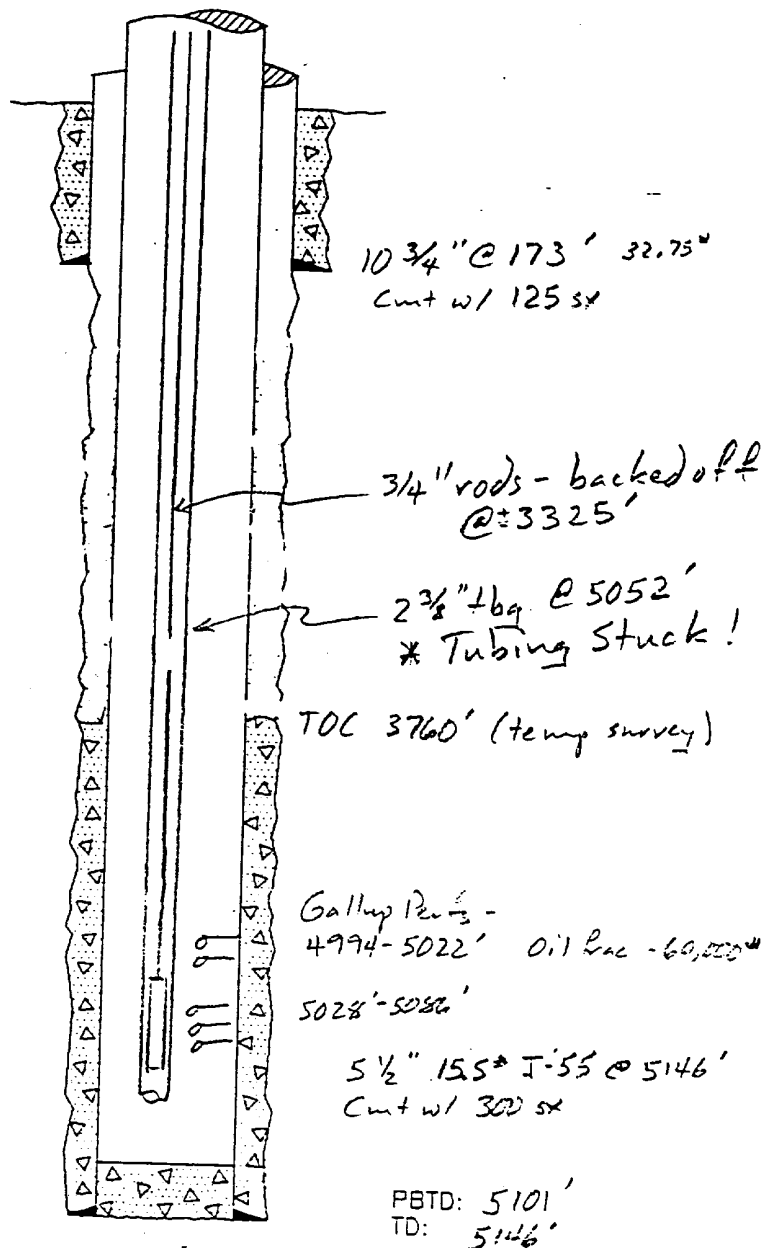 10 3/4" @ 173' 32.75#
Cmt w/ 125 sx
3/4" rods - backed off
@ ± 3325'
2 3/8" tbg @ 5052'
* Tubing Stuck!
TOC 3760' (temp survey)
Gallup Perfs -
4994-5022' Oil frac - 60,000#
5028'-5086'
5 1/2" 15.5# J-55 @ 5146'
Cmt w/ 300 sx
PBTD: 5101'
TD: 5146'